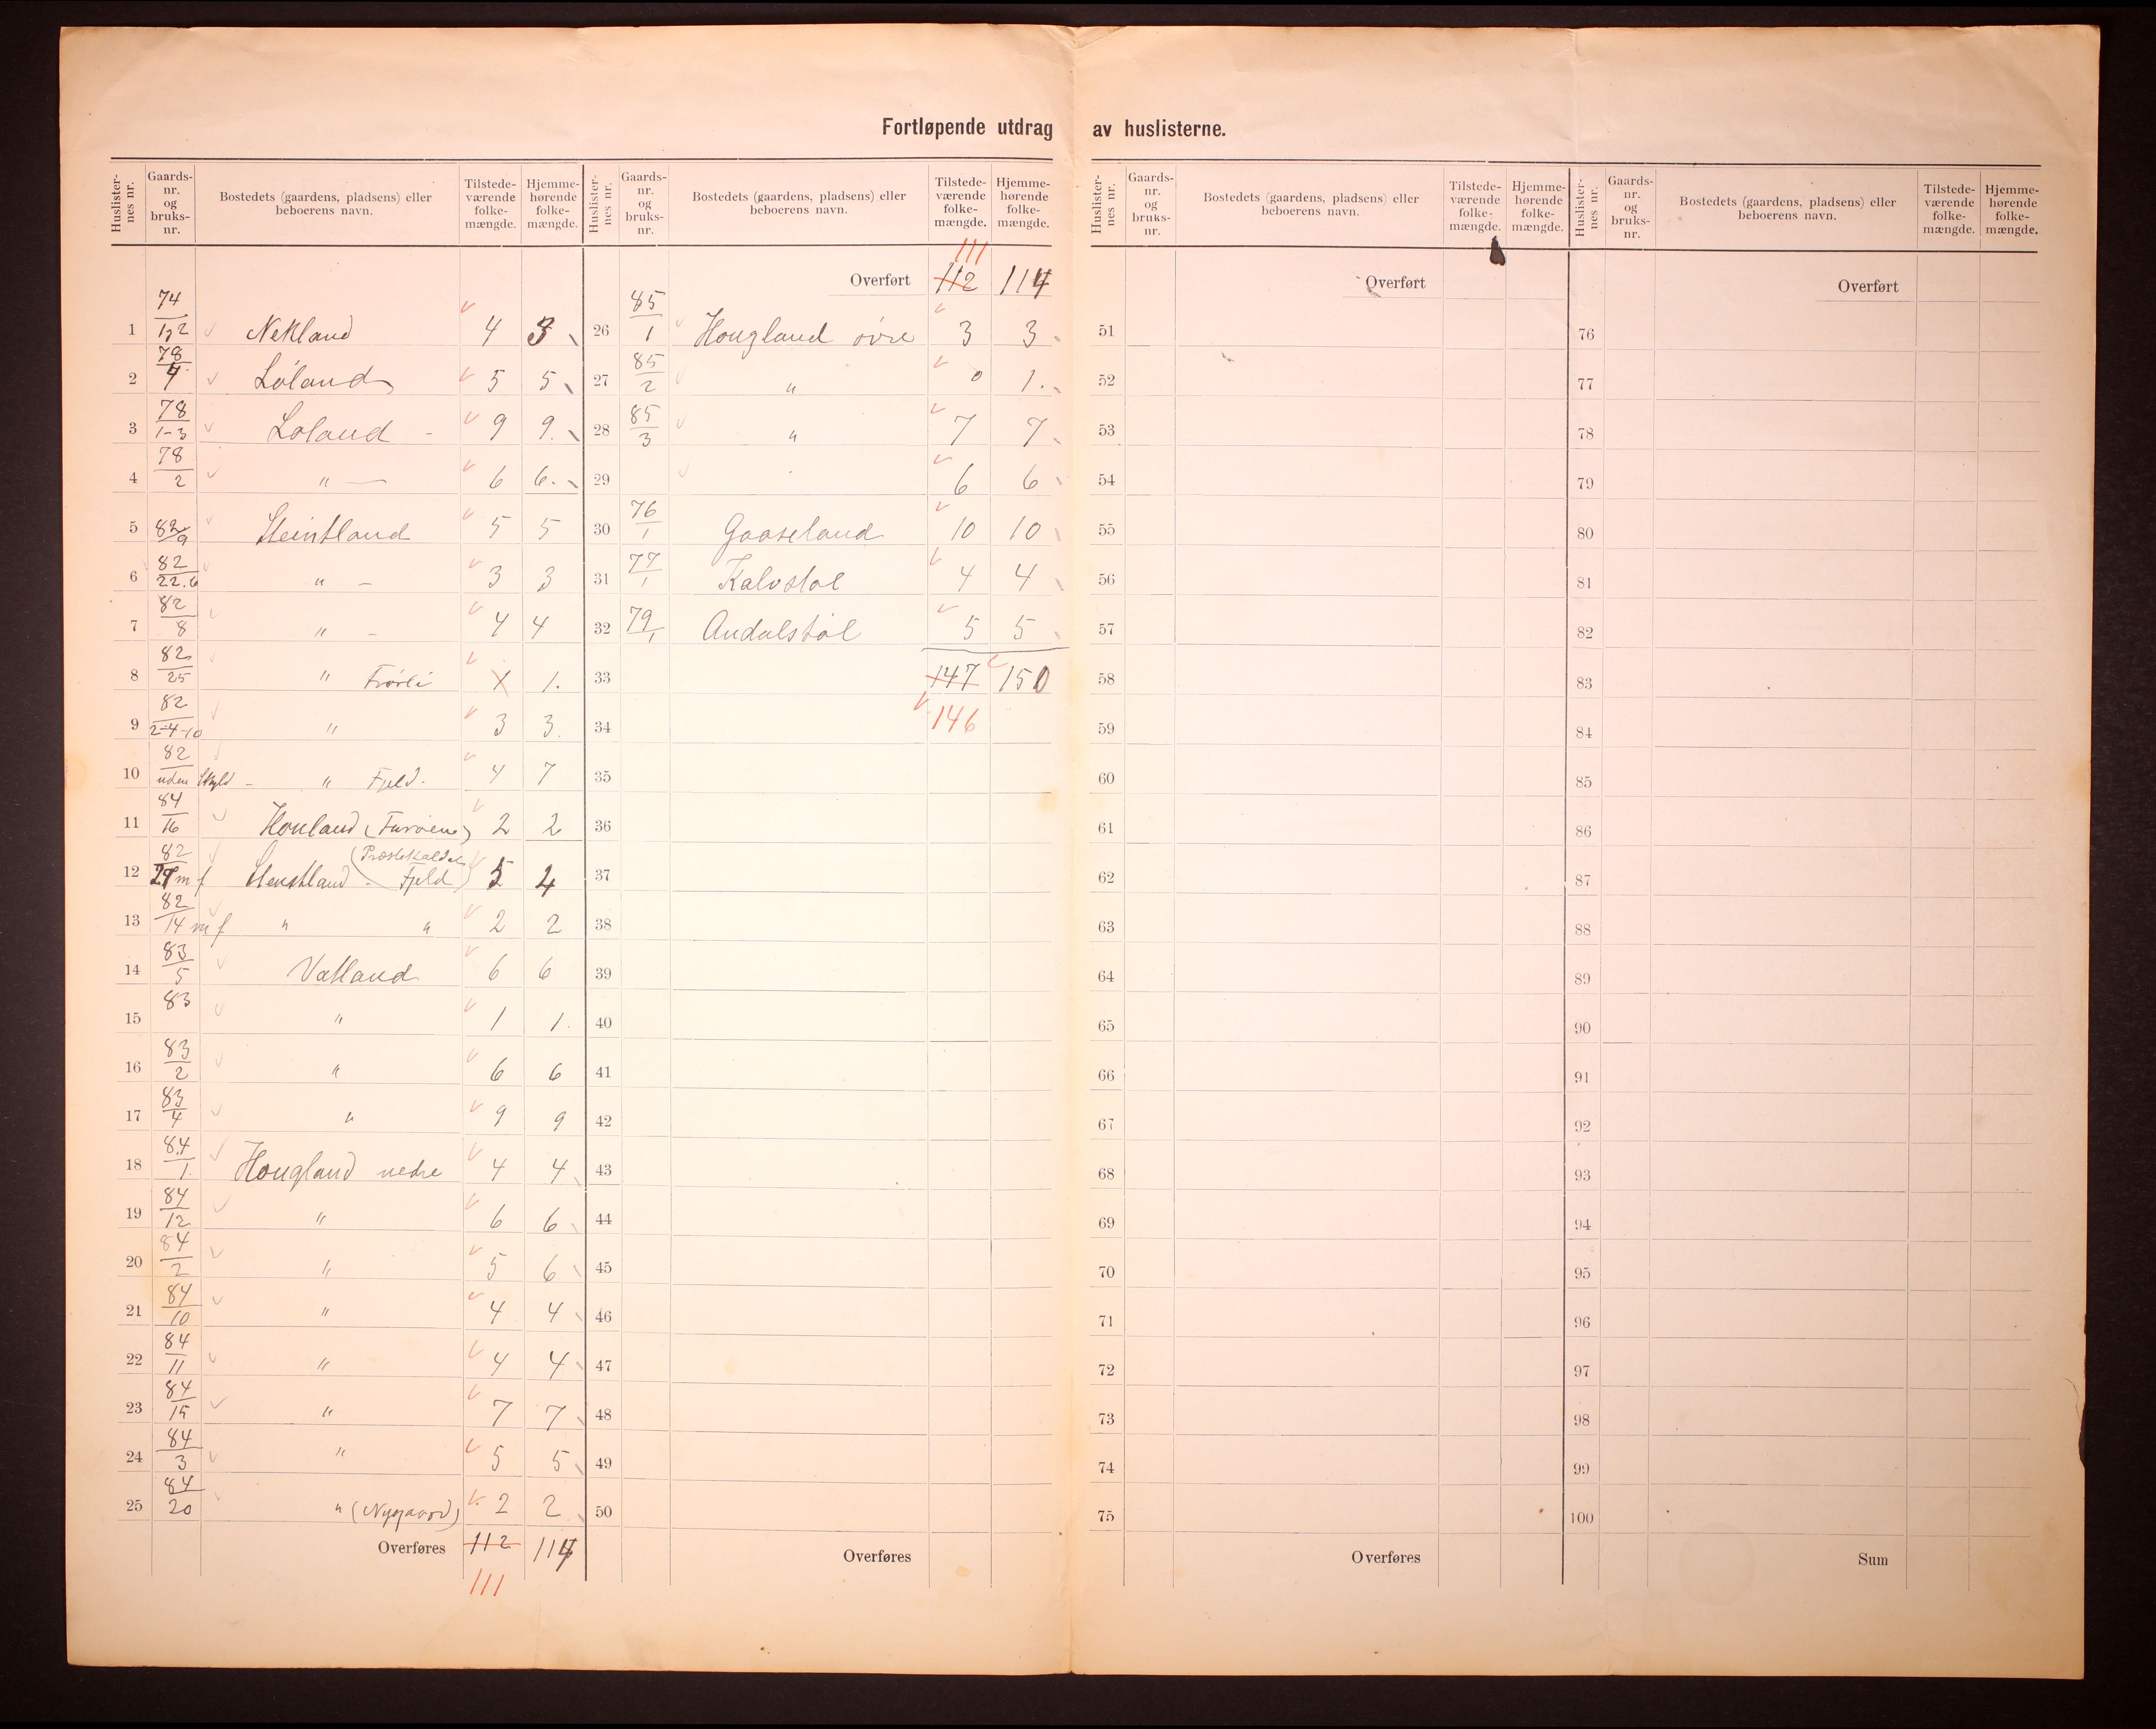 Fortløpende utdrag av huslisterne.
Huslister-nes nr. Gaards-nr. og bruks-nr. Bostedets (gaardens, pladsens) eller beboerens navn. Tilstede-værende folke-mængde. Hjemme-hørende folke-mængde.
1 74/1,2 Nekland 4 3
2 78/4 Løland 5 5
3 78/1-3 Løland - 9 9.
4 78/2 " — 6 6.
5 82/9 Steinsland 5 5
6 82/22.6 " - 3 3
7 82/8 " - 4 4
8 82/25 " 1 1.
9 82/2-4-10 " 3 3.
10 82/uden Skyld - " Fjeld. 4 7
11 84/16 Houland (Furøene) 2 2
12 82/29 m f Stensland - (Præstekaldet Fjeld) 5 4
13 82/14 m f " " 2 2
14 83/5 Vatland 6 6
15 83 " 1 1.
16 83/2 " 6 6
17 83/4 " 9 9
18 84/1. Hougland nedre 4 4
19 84/12 " 6 6
20 84/2 " 5 6
21 84/10 " 4 4
22 84/11 " 4 4
23 84/15 " 7 7
24 84/3 " 5 5
25 84/20 " (Nygaard) 2 2
Overføres 112 114
111
Huslister-nes nr. Gaards-nr. og bruks-nr. Bostedets (gaardens, pladsens) eller beboerens navn. Tilstede-værende folke-mængde. Hjemme-hørende folke-mængde.
111
Overført 112 114
26 85/1 Hougland øvre 3 3
27 85/2 " 0 1.
28 85/3 " 7 7
29 6 6
30 76/1 Gaaseland 10 10
31 77/1 Kalvstøl 4 4
32 79/1 Audalstøl 5 5
33 147 150
34 146
35
36
37
38
39
40
41
42
43
44
45
46
47
48
49
50
Overføres
Huslister-nes nr. Gaards-nr. og bruks-nr. Bostedets (gaardens, pladsens) eller beboerens navn. Tilstede-værende folke-mængde. Hjemme-hørende folke-mængde.
Overført
51
52
53
54
55
56
57
58
59
60
61
62
63
64
65
66
67
68
69
70
71
72
73
74
75
Overføres
Huslister-nes nr. Gaards-nr. og bruks-nr. Bostedets (gaardens, pladsens) eller beboerens navn. Tilstede-værende folke-mængde. Hjemme-hørende folke-mængde.
Overført
76
77
78
79
80
81
82
83
84
85
86
87
88
89
90
91
92
93
94
95
96
97
98
99
100
Sum